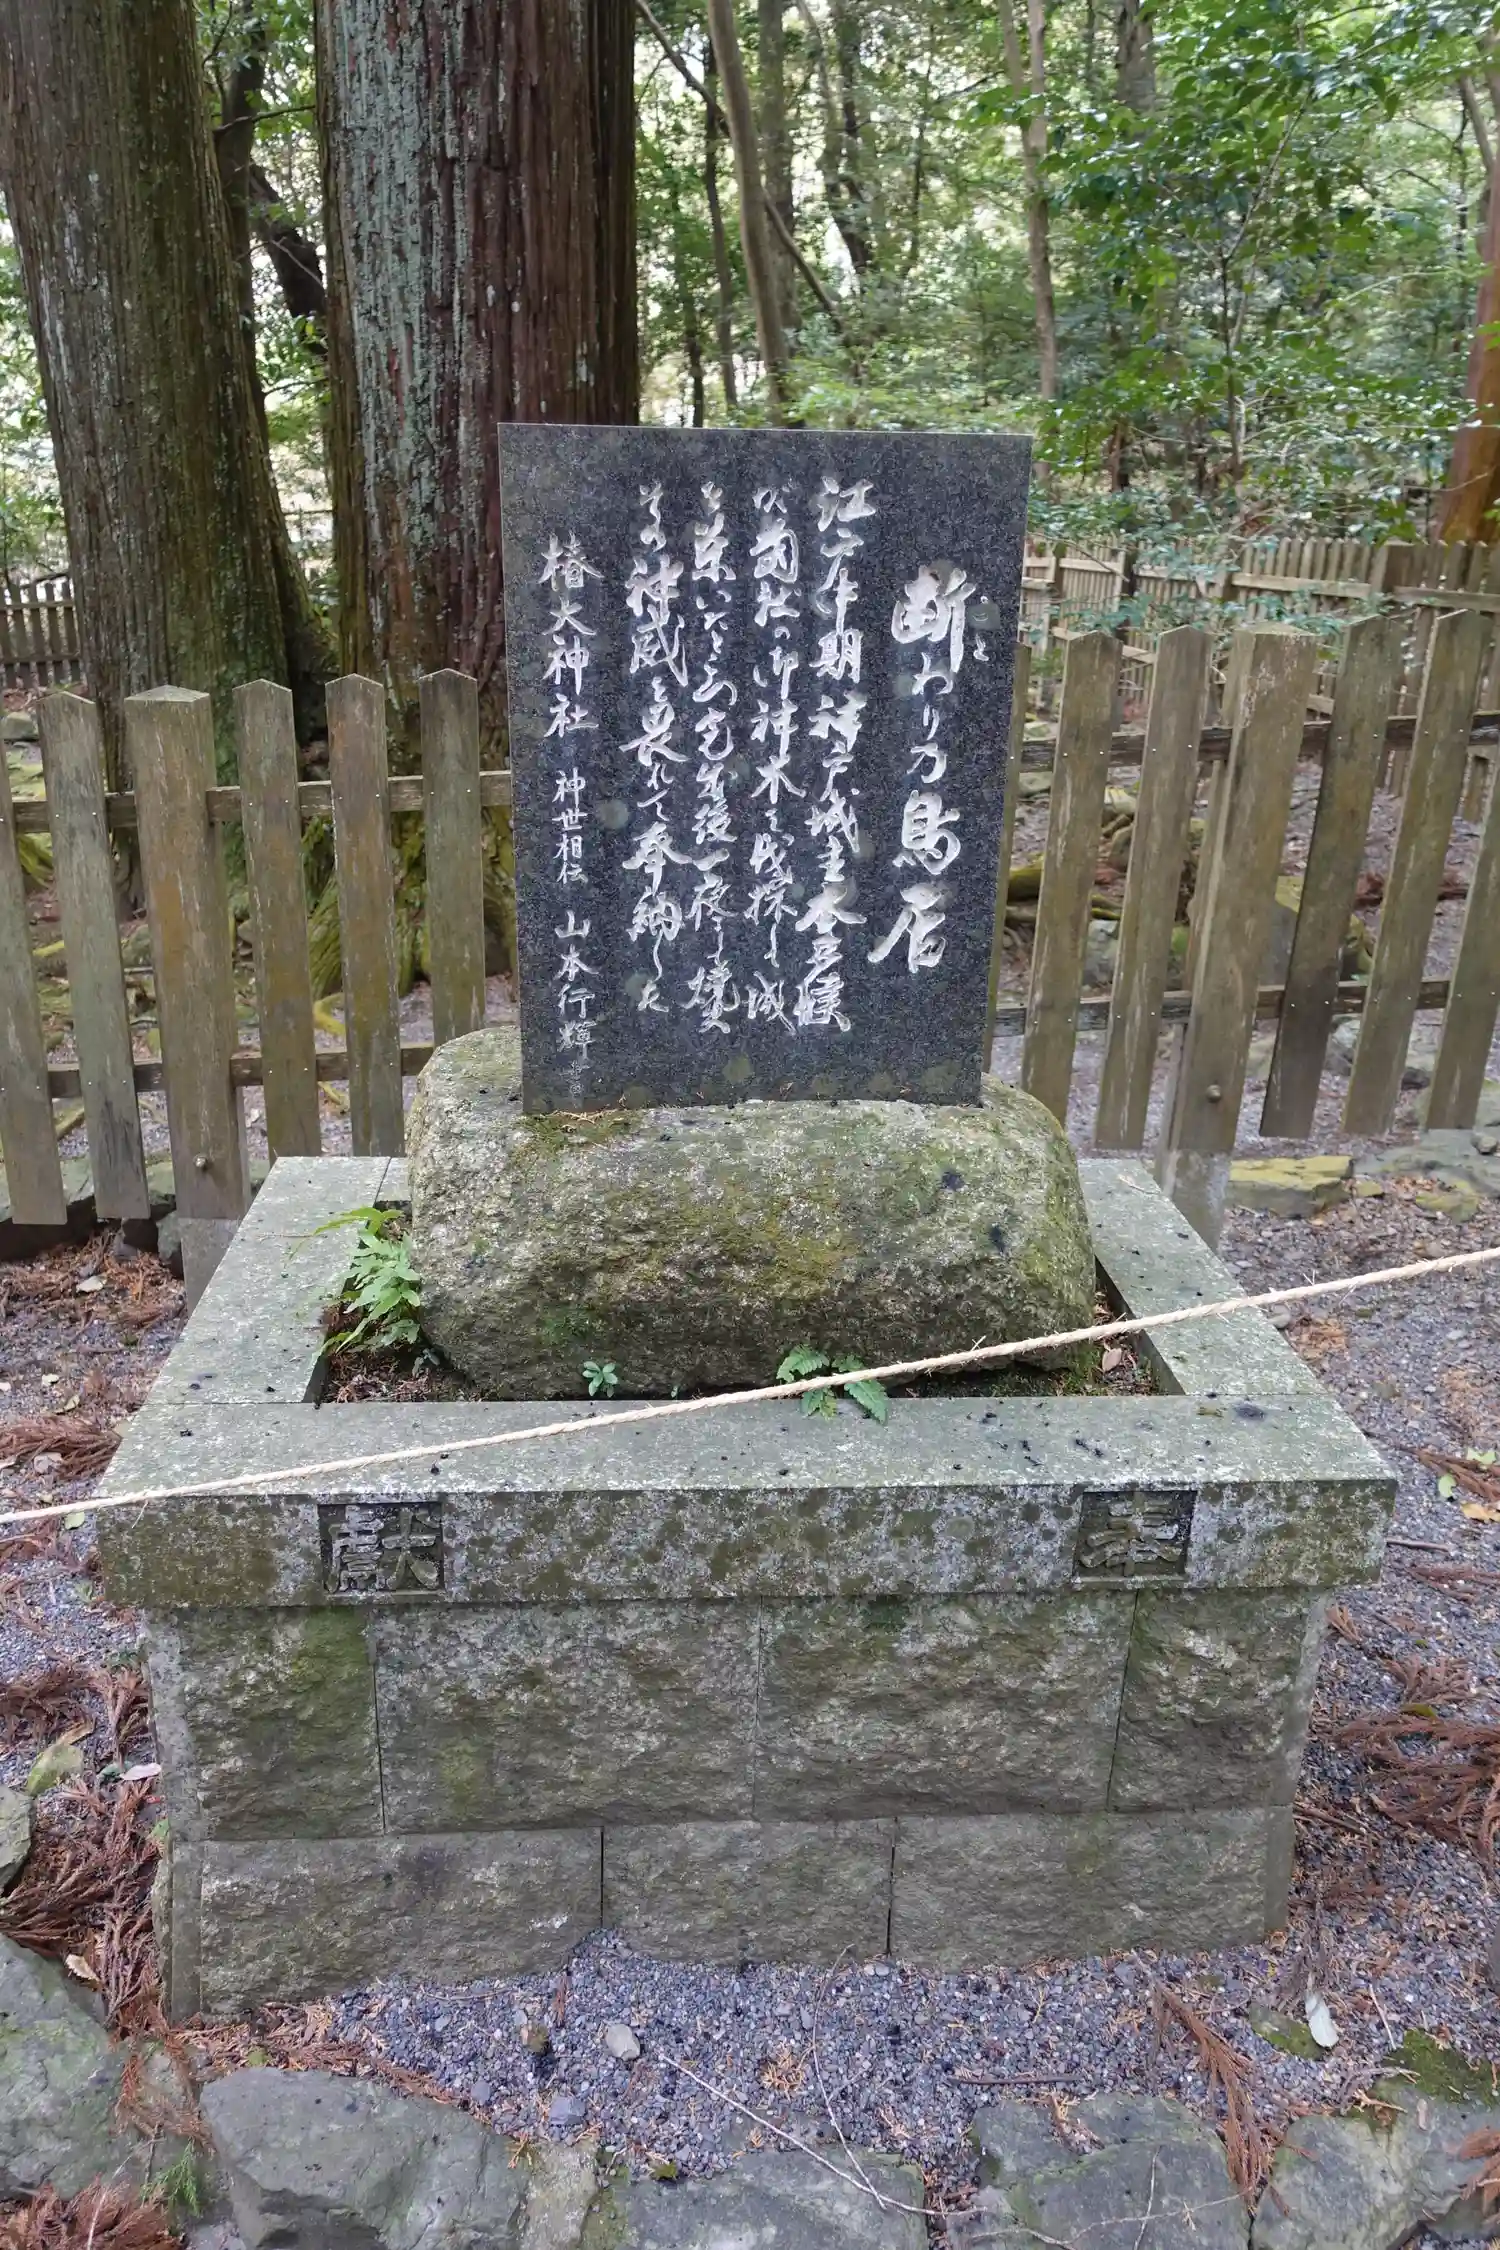 断わり乃鳥居
こと
江戸中期神戸城主本多候
が當社の御神木を伐採し城
を築いたところ完成後一夜にして焼失
その神威を畏れて奉納した
椿大神社 神世相伝 山本行輝
奉献